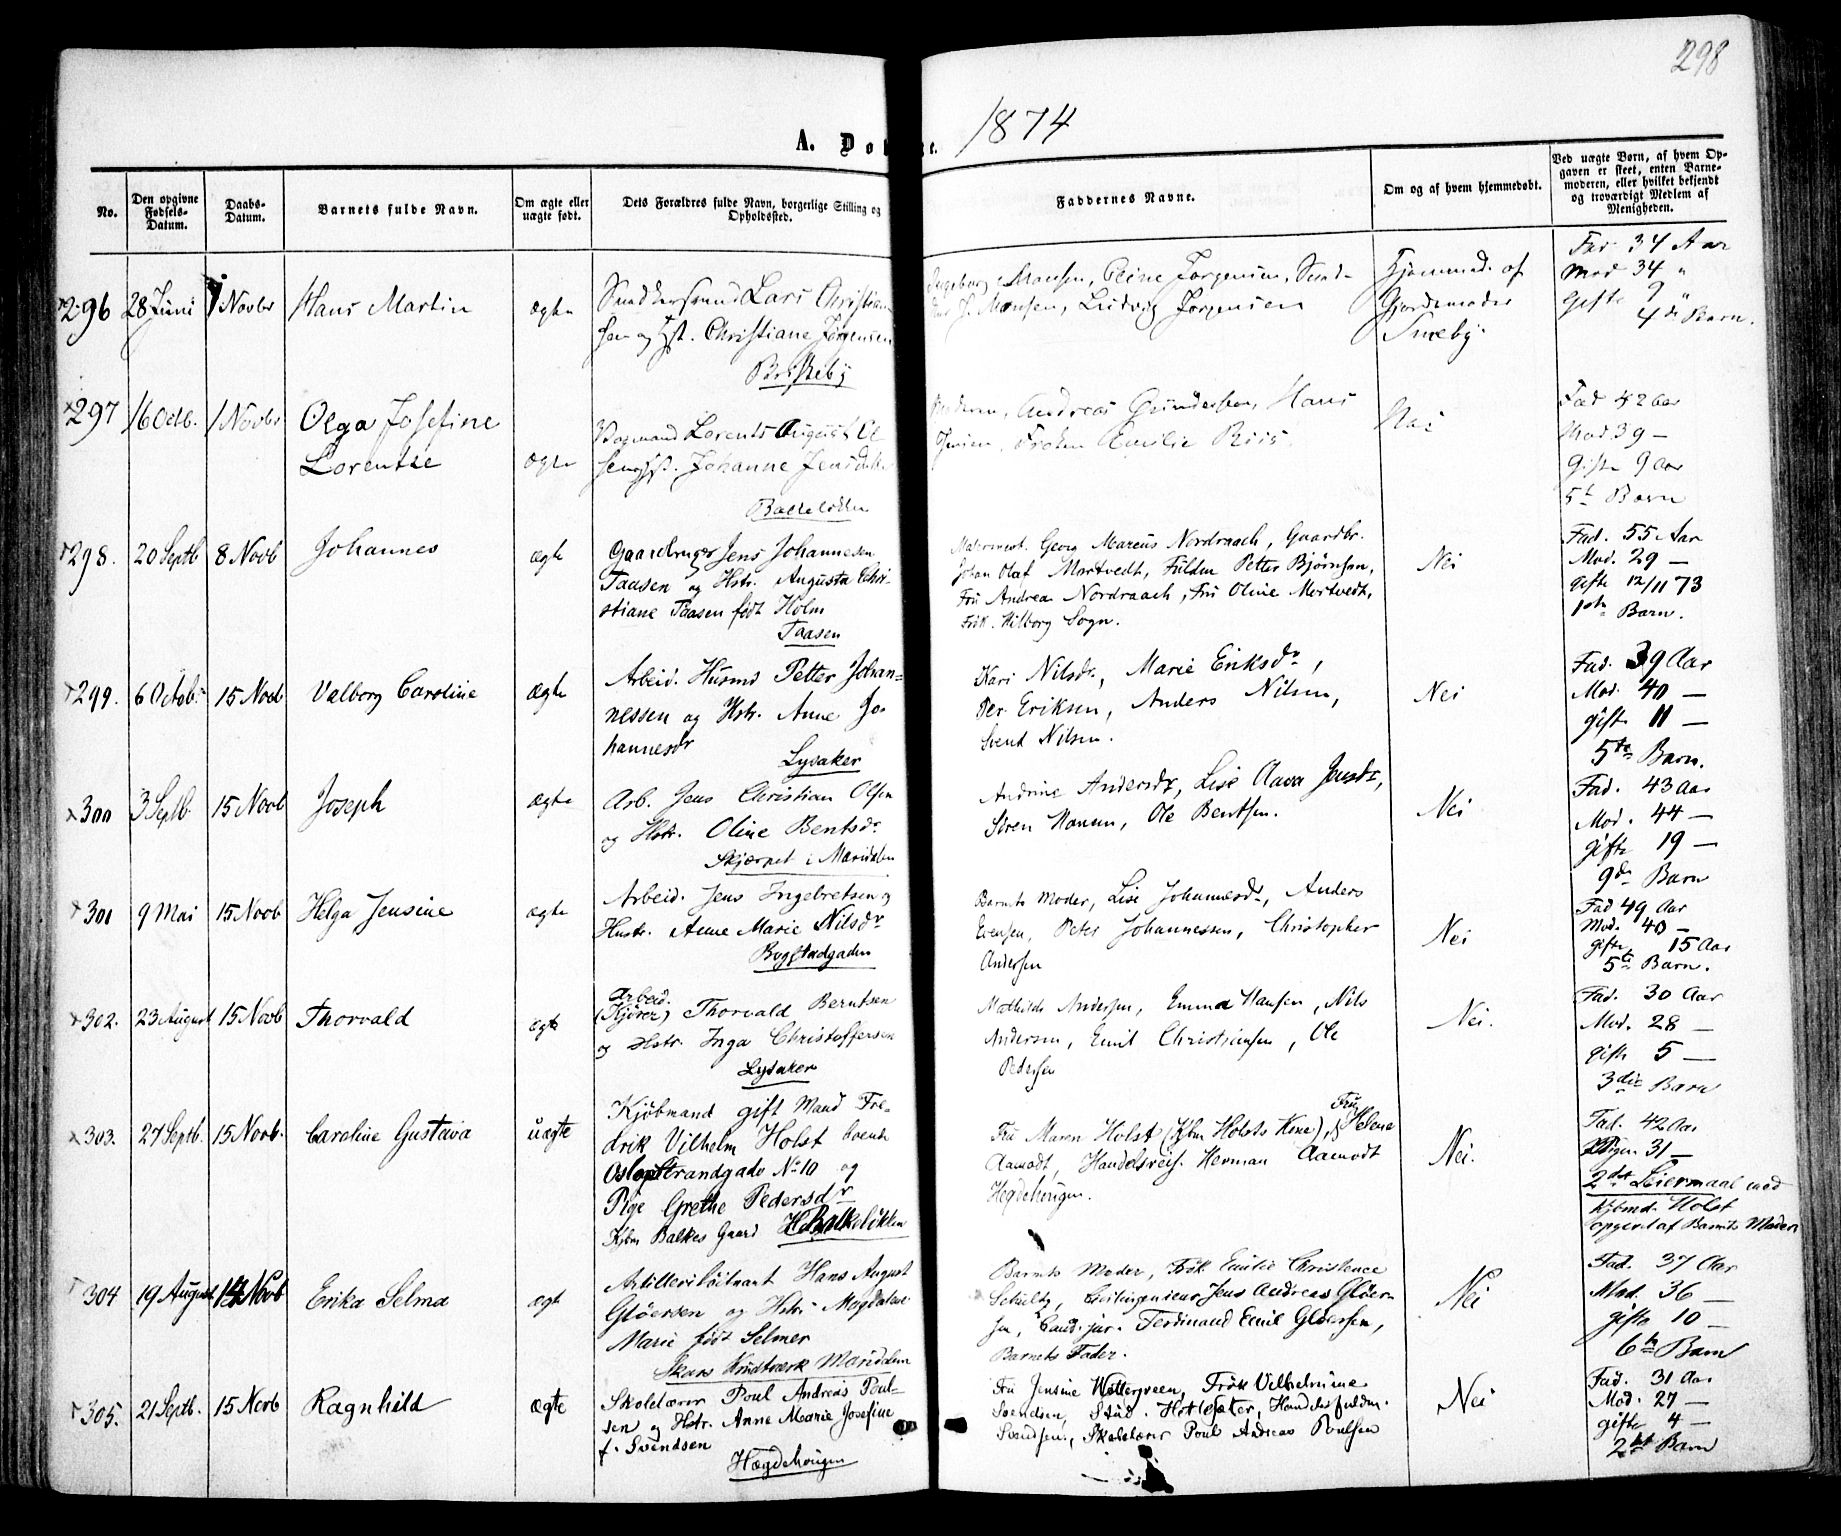 298
A. Dø e. 1874
No.
Den opgivne Fødsels-Datum.
Daabs-Datum.
Barnets fulde Navn.
Om ægte eller uægte født.
Dets Forældres fulde Navn, borgerlige Stilling og Opholdssted.
Faddernes Navne.
Om og af hvem hjemmedøbt.
Ved uægte Børn, af hvem Op-
gaven er skeet, enten Barne-
moderen, eller hvilket bekjendt
og troværdigt Medlem af
Menigheden.
296 28 Juni 1 Novbr Hans Martin ægte
Lars Christian
sen og Hst. Christiane Jørgensen
Briskeby
Ingeborg Monsen, Jørgensen,
J. Monsen, Ludvig Jørgensen
Hjemmed. af
Gjordemoder
Smeby
Far 34 Aar
Mod 34 "
Gifte 9 "
4de Barn.
297 16 Octb. 1 Novbr Olga Josefine
Lorentze ægte
Lorents August Ol
sen og Hst. Johanne Jensdtr.
Balkeløkken
Andreas Gundersen, Hans
Jensen, Frøken Emilie Riis.
Nei
Fad 42 Aar
Mod 39 —
Gifte 9 Aar
5te Barn
298. 20 Septb 8 Novb Johannes ægte
Gaardbruger Jens Johannesen
Taasen og Hstr. Augusta Chri-
stiane Taasen født Holm
Taasen
Georg Marcus Nordraach, Gaardbr.
Johan Olaf Mortvedt, Fuldm Petter Bjørnsen,
Fru Andrea Nordraach, Fru Oline Mortvedt,
Frøk. Wilborg Sogn.
Nei
Fad. 55 Aar
Mod. 29 —
gifte 12/11 73
1ste Barn.
299. 6 Octob. 15 Novb Valborg Caroline ægte
Arbeid. Husmd Petter Johan-
nessen og Hstr. Anne Jo-
hannesdr
Lysaker
Kari Nilsdr., Marie Eriksdr,
Per Eriksen, Anders Nilsen,
Svend Nilsen.
Nei
Fad. 39 Aar
Mod. 40 —
gift 11 —
5te Barn.
300 3 Septb. 15 Novb Joseph ægte
Arb. Jens Christian Olsen
og Hstr. Oline Bentsdr
Skjærpet i Maridalen
Andrine Andersdr, Lise Olava Jensdr,
Søren Hansen, Ole Bentsen.
Nei
Fad. 43 Aar
Mod. 44 —
gifte 19 —
9de Barn
301 9 Mai 15 Novb Helga Jensine ægte
Arbeid. Jens Ingebretsen og
Hustr. Anne Marie Nilsdr
Bogstadgaden
Barnets Moder, Lise Johannesdr., Anders
Evensen, Peter Johannessen, Christopher
Andersen
Nei
Fad 49 Aar
Mod. 40 —
gifte 15 Aar
5te Barn.
302. 23 August 15 Novb Thorvald ægte
Arbeid.
(Kjører) Thorvald Berntsen
og Hstr. Inga Christoffersen
Lysaker
Mathilde Andersen, Emma Hansen, Nils
Andersen, Emil Christiansen, Ole
Pedersen
Nei.
Fad. 30 Aar
Mod. 28 —
gift 5 —
3die Barn
303. 27 Septb. 15 Novb. Caroline Gustava uægte
Kjøbmand gift Mand Fre-
drik Vilhelm Holst boende
Oslo Strandgade No 10 og
Pige Grethe Pedersdr
Kjbm Balkes Gaard Balkeløkken
Fru Maren Holst (Kjbm Holsts Kone), Fru Helene
Aamodt, Handelsreis. Herman Aamodt
Hegdehougen.
Nei.
Fad. 42 Aar
Pigen 31 —
2det Leiermaal med
Kjbmd. Holst
opgivet af Barnets Moder
304 19 August 14 Novb Erika Selma ægt
Artillerilöitnant Hans August
Glöersen og Hstr Magdalene
Marie født Selmer
Skars Krudtværk Maridalen
Barnets Moder, Frøk Emilie Christence
Schultz, Civilingenieur Jens Andreas Glöer-
sen, Cand. jur. Ferdinand Emil Glöersen,
Barnets Fader.
Nei
Fad. 37 Aar
Mod. 36 —
gifte 10 —
6te Barn
305. 21 Septb. 15 Novb Ragnhild ægte
Skolelærer Poul Andreas Poul-
sen og Hstr. Anne Marie Josefine
f. Svendsen
Hægdehougen
Fru Jensine Frøk Vilhelmine
Svendsen, Stud. Handelsfuldm.
Svendsen, Skolelærer Poul Andreas Poulsen
Nei
Fad. 31 Aar
Mod. 27 —
gifte 4 —
2det Barn